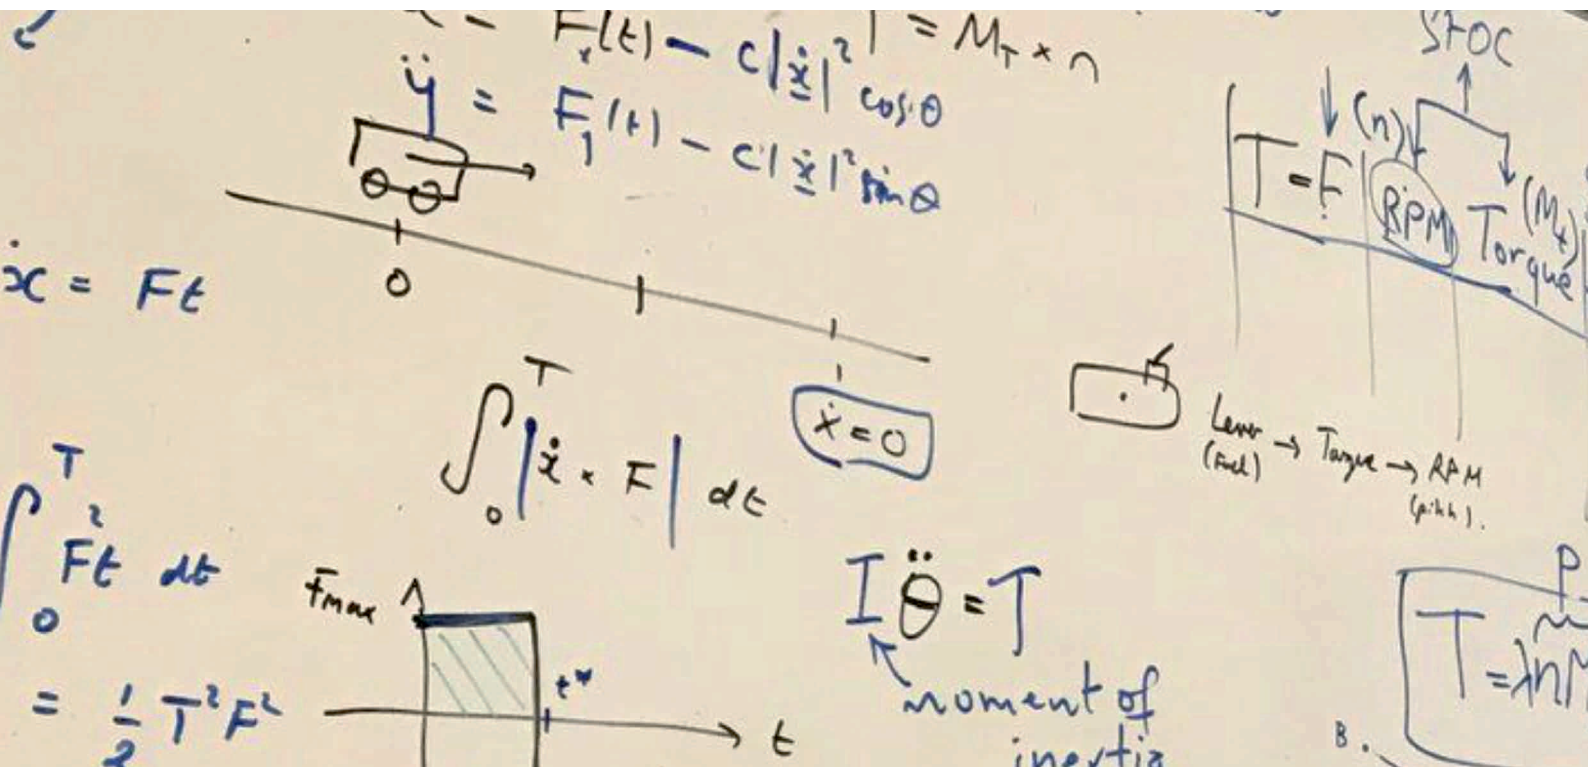 F_x(t) - c|ẋ|² cosθ
= M_T × n
ÿ = F_y(t) - c|ẋ|² sinθ
SFOC
(n)
T = F | RPM Torque (M_t)
0
ẋ = Ft
ẋ = 0
∫₀ᵀ |ẋ · F| dt
Lever → Torque → RPM
(Fuel) (pitch).
∫₀ᵀ F²t dt
= ½ T²F²
Fmax
t*
t
Iθ̈ = T
moment of
inertia
P
T = λnM
B.